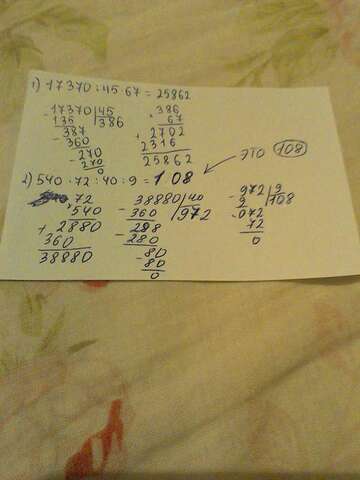 1) 17370 : 45 · 67 = 25862
17370 | 45
135 | 386
387
360
270
270
0
386
67
2702
2316
25862
это 108
2) 540 · 72 : 40 : 9 = 108
72
540
2880
360
38880
38880 | 40
360 | 972
288
280
80
80
0
972 | 9
9 | 108
072
72
0